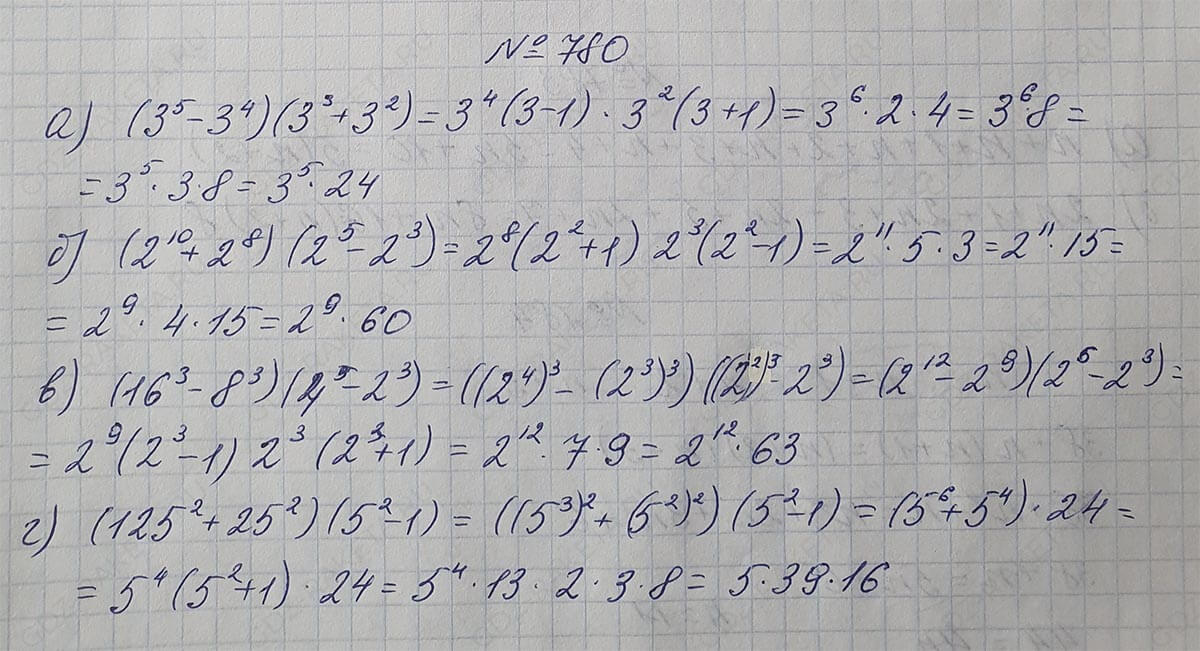 № 780
а) (3⁵ - 3⁴)(3³ + 3²) = 3⁴(3 - 1) · 3²(3 + 1) = 3⁶ · 2 · 4 = 3⁶8 =
= 3⁵ · 3 · 8 = 3⁵ · 24
б) (2¹⁰ + 2⁸)(2⁵ - 2³) = 2⁸(2² + 1) 2³(2² - 1) = 2¹¹ · 5 · 3 = 2¹¹ · 15 =
= 2⁹ · 4 · 15 = 2⁹ · 60
в) (16³ - 8³)(4³ - 2³) = ((2⁴)³ - (2³)³)((2²)³ - 2³) = (2¹² - 2⁹)(2⁶ - 2³) =
= 2⁹(2³ - 1) 2³(2³ + 1) = 2¹² · 7 · 9 = 2¹² · 63
г) (125² + 25²)(5² - 1) = ((5³)² + (5²)²)(5² - 1) = (5⁶ + 5⁴) · 24 =
= 5⁴(5² + 1) · 24 = 5⁴ · 13 · 2 · 3 · 8 = 5 · 39 · 16